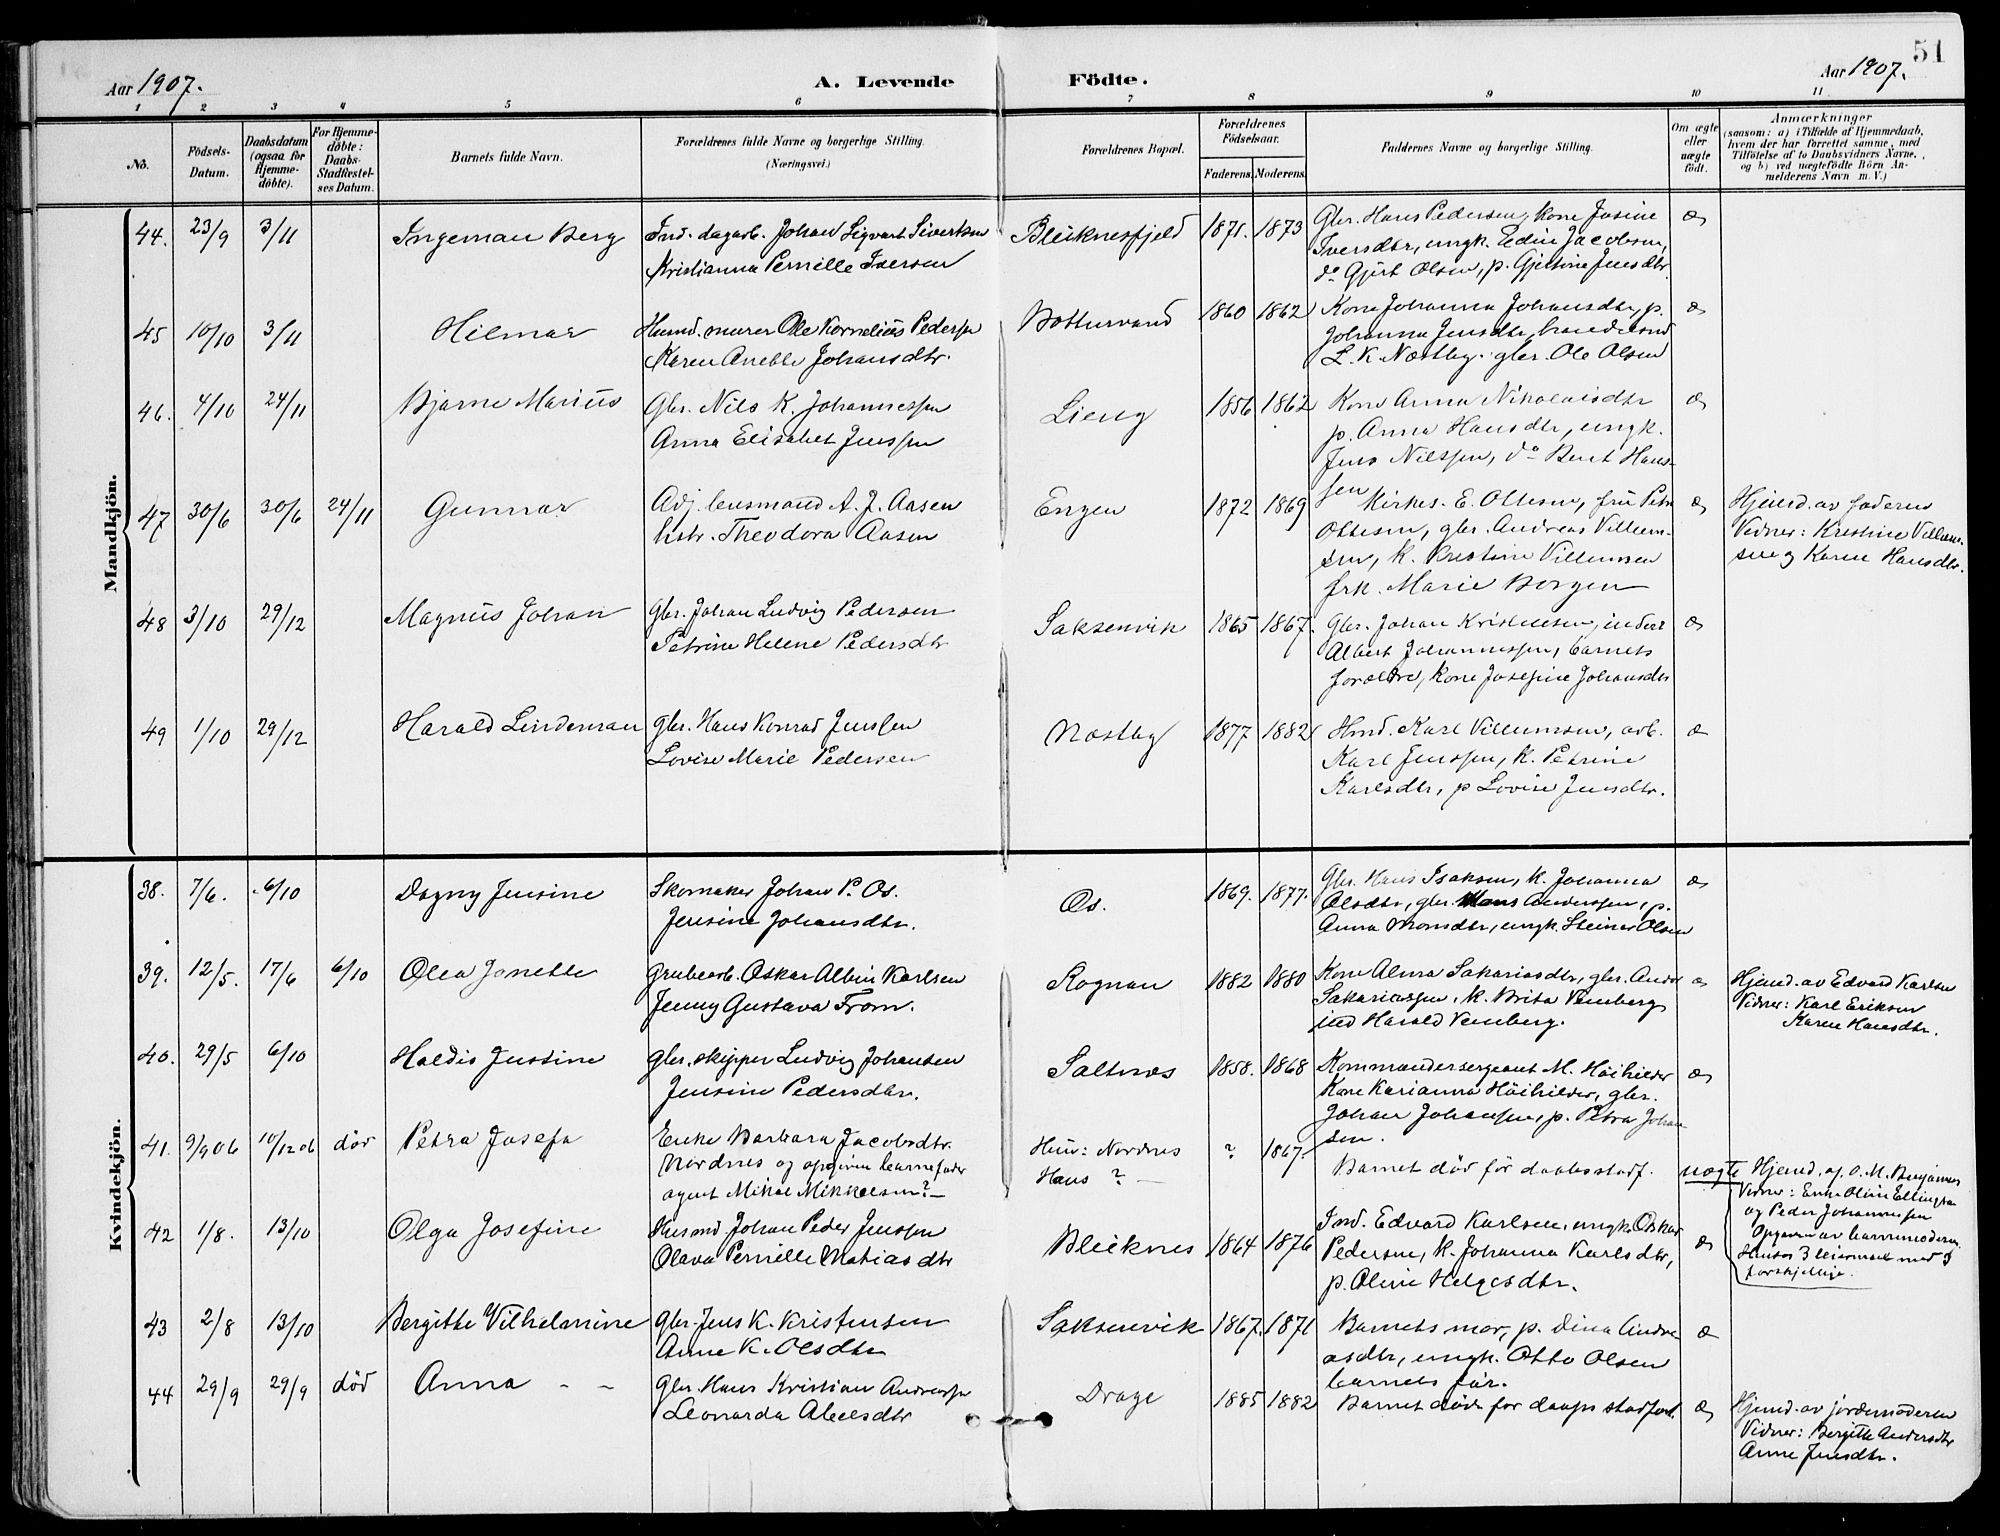 51
Aar 1907.
A. Levende
Födte.
Aar 1907.
1 2 3 4 5 6 7 8 9 10 11
No.
Födsels-
Datum.
Daabsdatum
(ogsaa for
Hjemme-
döbte).
For Hjemme-
döbte:
Daabs-
Stadfæstel-
ses Datum.
Barnets fulde Navn.
Forældrenes fulde Navne og borgerlige Stilling.
(Næringsvei.)
Forældrenes Bopæl.
Forældrenes
Födselsaar.
Faderens. Moderens.
Faddernes Navne og borgerlige Stilling.
Om ægte
eller
uægte
födt.
Anmærkninger
(saasom: a) i Tilfælde af Hjemmedaab,
hvem der har forrettet samme, med
Tilföielse af to Daabsvidners Navne,
og b) ved uægtefödte Börn An-
melderens Navn m. V.)
Mandkjön.
44. 23/9 3/11 Ingeman Berg
Ind. dagarb. Johan Sigvart Sivertsen
Kristianna Pernille Iversen
Bleiknesfjeld 1871. 1873
Gbr. Hans Pedersen, kone Josine
Iversdtr, ungk. Edin Jacobsen,
do Gjert Olsen, p. Gjertine Jensdtr.
æ
45 10/10 3/11 Hilmar
Husmd. murer Ole Kornelius Pedersen
Karen Anette Johansdtr.
Botnvand 1860 1862
Kone Johanna Johansdtr, p.
Johanna Jensdtr, handelsmd
L. K. Næstby. gbr. Ole Olsen
æ
46. 4/10 24/11 Bjarne Marius
Gbr. Nils K. Johannessen
Anna Elisabet Jenssen
Lieng 1856 1862
Kone Anna Nikolaisdtr
p. Anna Hansdtr, ungk.
Jens Nilssen, do Bent Hans-
sen
æ
47 30/6 30/6 24/11 Gunnar
Adj. lensmand A. J. Aasen
hstr. Theodora Aasen
Engen 1872 1869
Kirkes. E. Ottesen, fru Petra
Ottesen, gbr. Andreas Villum-
sen, k. Kristine Villumsen
frk. Marie Borgen
æ
Hjemd. av faderen
Vidner: Kristine Villum-
sen og Karen Hansdtr.
48 3/10 29/12 Magnus Johan
Gbr. Johan Ludvig Pedersen
Petrine Helene Pedersdtr
Saksenvik 1865 1867.
Gbr. Johan Kristensen, inderst
Albert Johannessen, barnets
forældre, kone Josefine Johansdtr
æ
49 1/10 29/12 Harald Lindeman
Gbr. Hans Konrad Jenssen
Lovise Marie Pedersen
Næstby 1877 1882
Hmd. Karl Villumsen, arb.
Karl Jenssen, k. Petrine
Karlsdtr, p Lovise Jensdtr.
æ
Kvindekjön.
38. 7/6. 6/10 Dagny Jensine
Skomaker Johan P. Os.
Jensine Johansdtr.
Os. 1869. 1877.
Gbr. Hans Isaksen, k. Johanna
Olsdtr, gbr. Hans Anderssen, p.
Anna Monsdtr, ungk. Steiner Olsen
æ
39. 12/5. 17/6 6/10 Olea Jonette
Grubearb. Oskar Albin Karlsen
Jenny Gustava From.
Rognan 1882 1880
Kone Alma Sakariasdtr, gbr. Andr
Sakariassen, k. Brita Venberg
ind Harald Venberg.
æ
Hjemd. av Edvard Karlsen
Vidner: Karl Eriksen
Karen Hansdtr.
40. 29/5 6/10 Haldis Justine
gbr. skipper Ludvig Johansen
Jensine Pedersdtr.
Saltnes 1858. 1868
Kommandersergeant M. Höihilder
Kone Karianna Höihilder, gbr.
Johan Johansen, p. Petra Johan
sen.
æ
41. 9/9 06 10/12 06 död Petra Josefa
Enke Barbara Jacobsdtr.
Nordnes og opgiven barnefader
agent Mikal Mikkelsen? —
Hun: Nordnes
Hans ? —
? 1867.
Barnet död för daabsstadf.
uægte
Hjemd. af O. M. Benjaminsen
Vidner: Enke Oline Ellingsen
og Peder Johannesen
Opgaven av barnemoderen
Hendes 3 leiermaal med 3
forskjellige.
42 1/8. 13/10 Olga Josefine
Husmd. Johan Peder Jenssen
Olava Pernille Matiasdtr
Bleiknes 1864 1876
Ind. Edvard Karlsen, ungk. Oskar
Pedersen, k. Johanna Karlsdtr,
p. Oline Helgesdtr.
æ
43 2/8 13/10 Bergitte Vilhelmine
Gbr. Jens K. Kristensen
Anne K. Olsdtr
Saksenvik 1867. 1871
Barnets mor, p. Dina Andre
asdtr, ungk. Otto Olsen
barnets far.
æ
44 29/9 29/9 död Anna – –
Gbr. Hans Kristian Andreassen
Leonarda Abelsdtr
Drage 1885 1882
Barnet död för daaps stadfæst.
æ
Hjemd. av jordemoderen
Vidner: Bergitte Andersdtr
Anne Jensdtr.